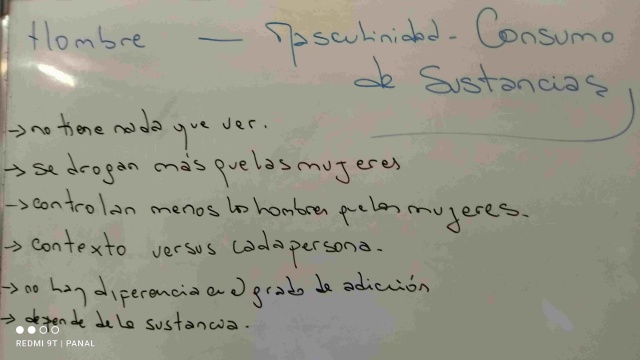 Hombre — Masculinidad - Consumo
de Sustancias
→ no tiene nada que ver.
→ se drogan más que las mujeres
→ controlan menos los hombres que las mujeres.
→ contexto versus cada persona.
→ no hay diferencia en el grado de adicción
→ depende de la sustancia.
REDMI 9T | PANAL